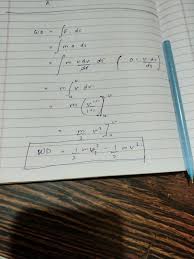 WD = ∫ F. ds
= ∫ m a ds
= ∫ m v dv/ds ds ( a = v dv/ds
= m ∫ᵤᵛ v dv
= m [ v¹⁺¹/1+1 ]ᵤᵛ
= m/2 [ v² ]ᵤᵛ
WD = 1/2 mv² - 1/2 mu²